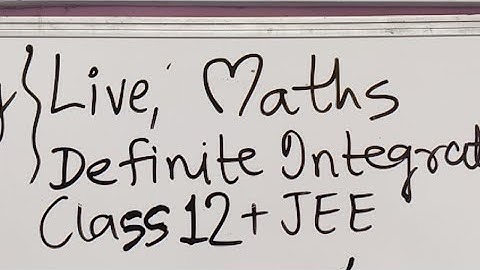 Live, Maths
Definite Integral
Class 12 + JEE